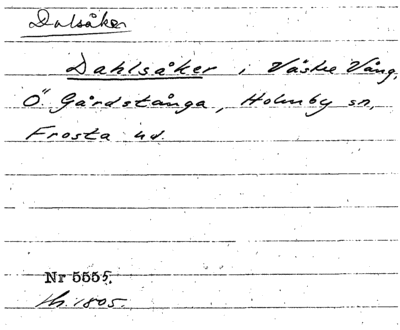 Dalsåker
Dahlsåker i Västre Vång,
Ö. Gårdstånga, Holmby sn,
Frosta hd.
Nr 5555.
1805.